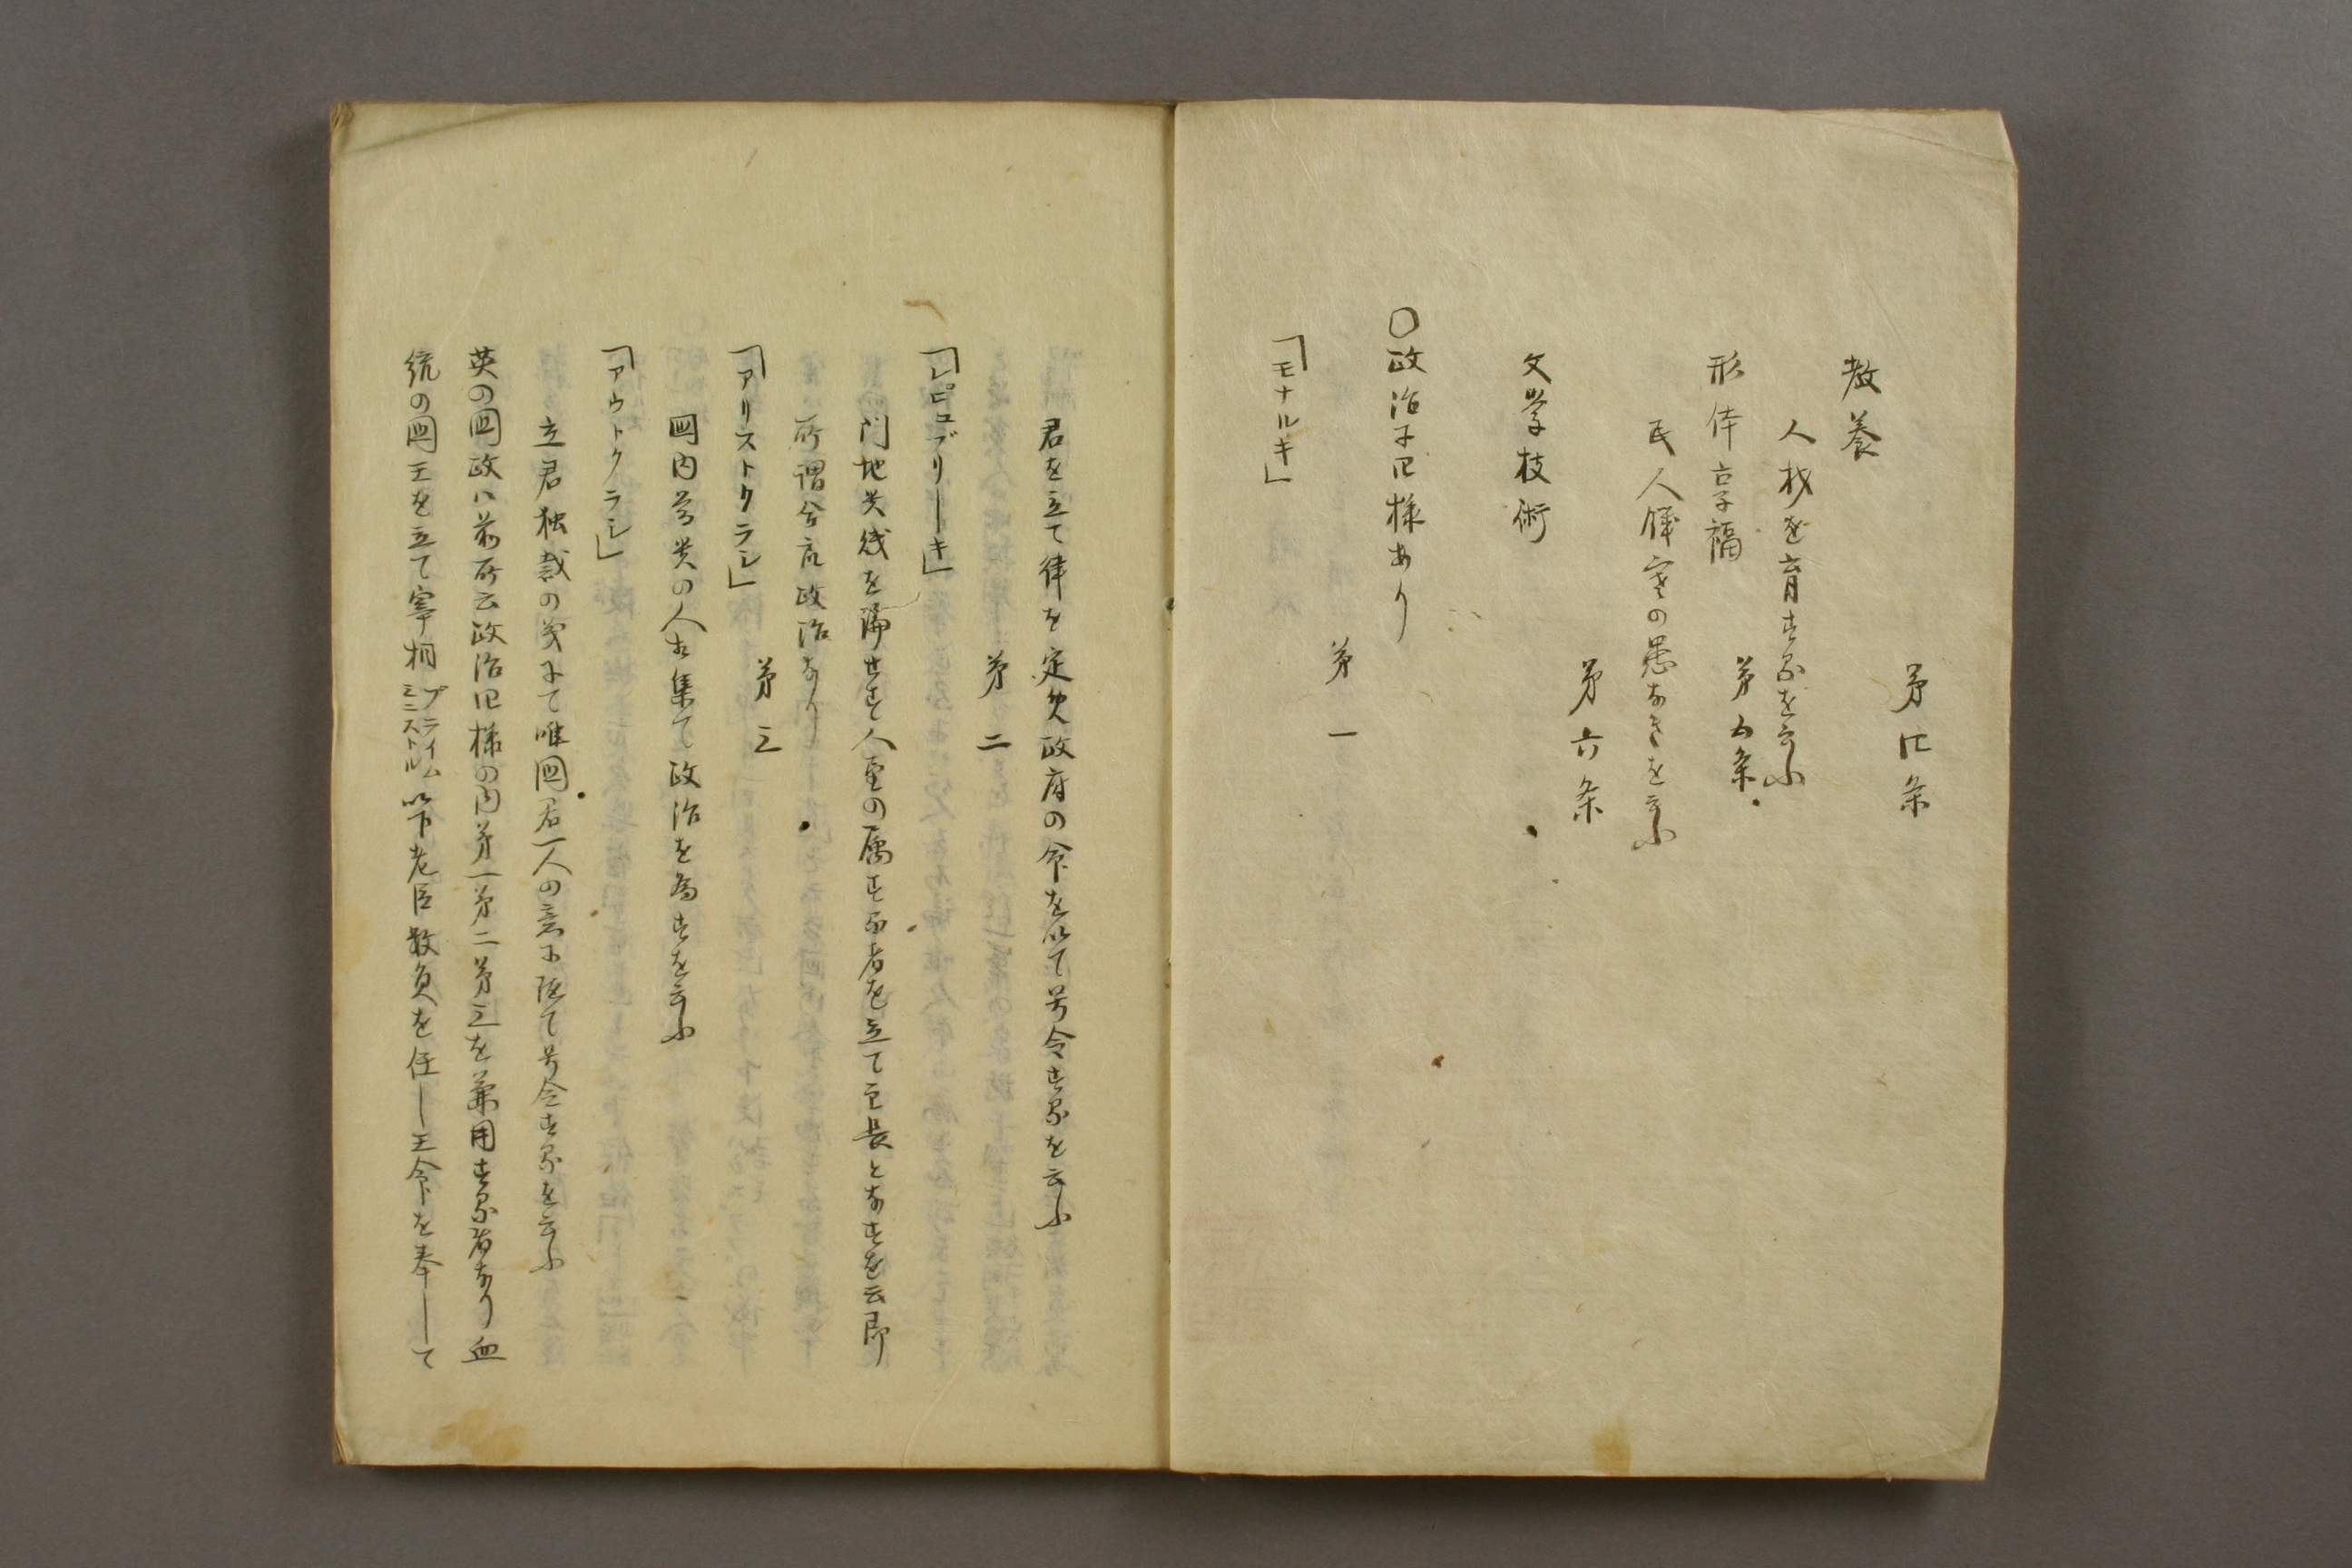 第四条
教養
人材を育する を云ふ
第五条
形体享福
民人饑寒の患なきを云ふ
第六条
文学技術
〇政治に四様あり
第一
「モナルキ」
君を立て律を定め政府の命を以て号令する を云ふ
第二
「レピユブリーキ」
門地貴賎を論せす人望の属する者を立て官長となすを云即
所謂合衆政治なり
第三
「アリストクラシ」
国内尊貴の人相集て政治を為すを云ふ
「アウトクラシ」
立君独裁の義にて唯国君一人の意に随て号令する を云ふ
英の国政ハ前所云政治四様の内第一第二第三を兼用する者なり血
統の国王を立て宰相プライムミニストル以下老臣数員を任し王命を奉して